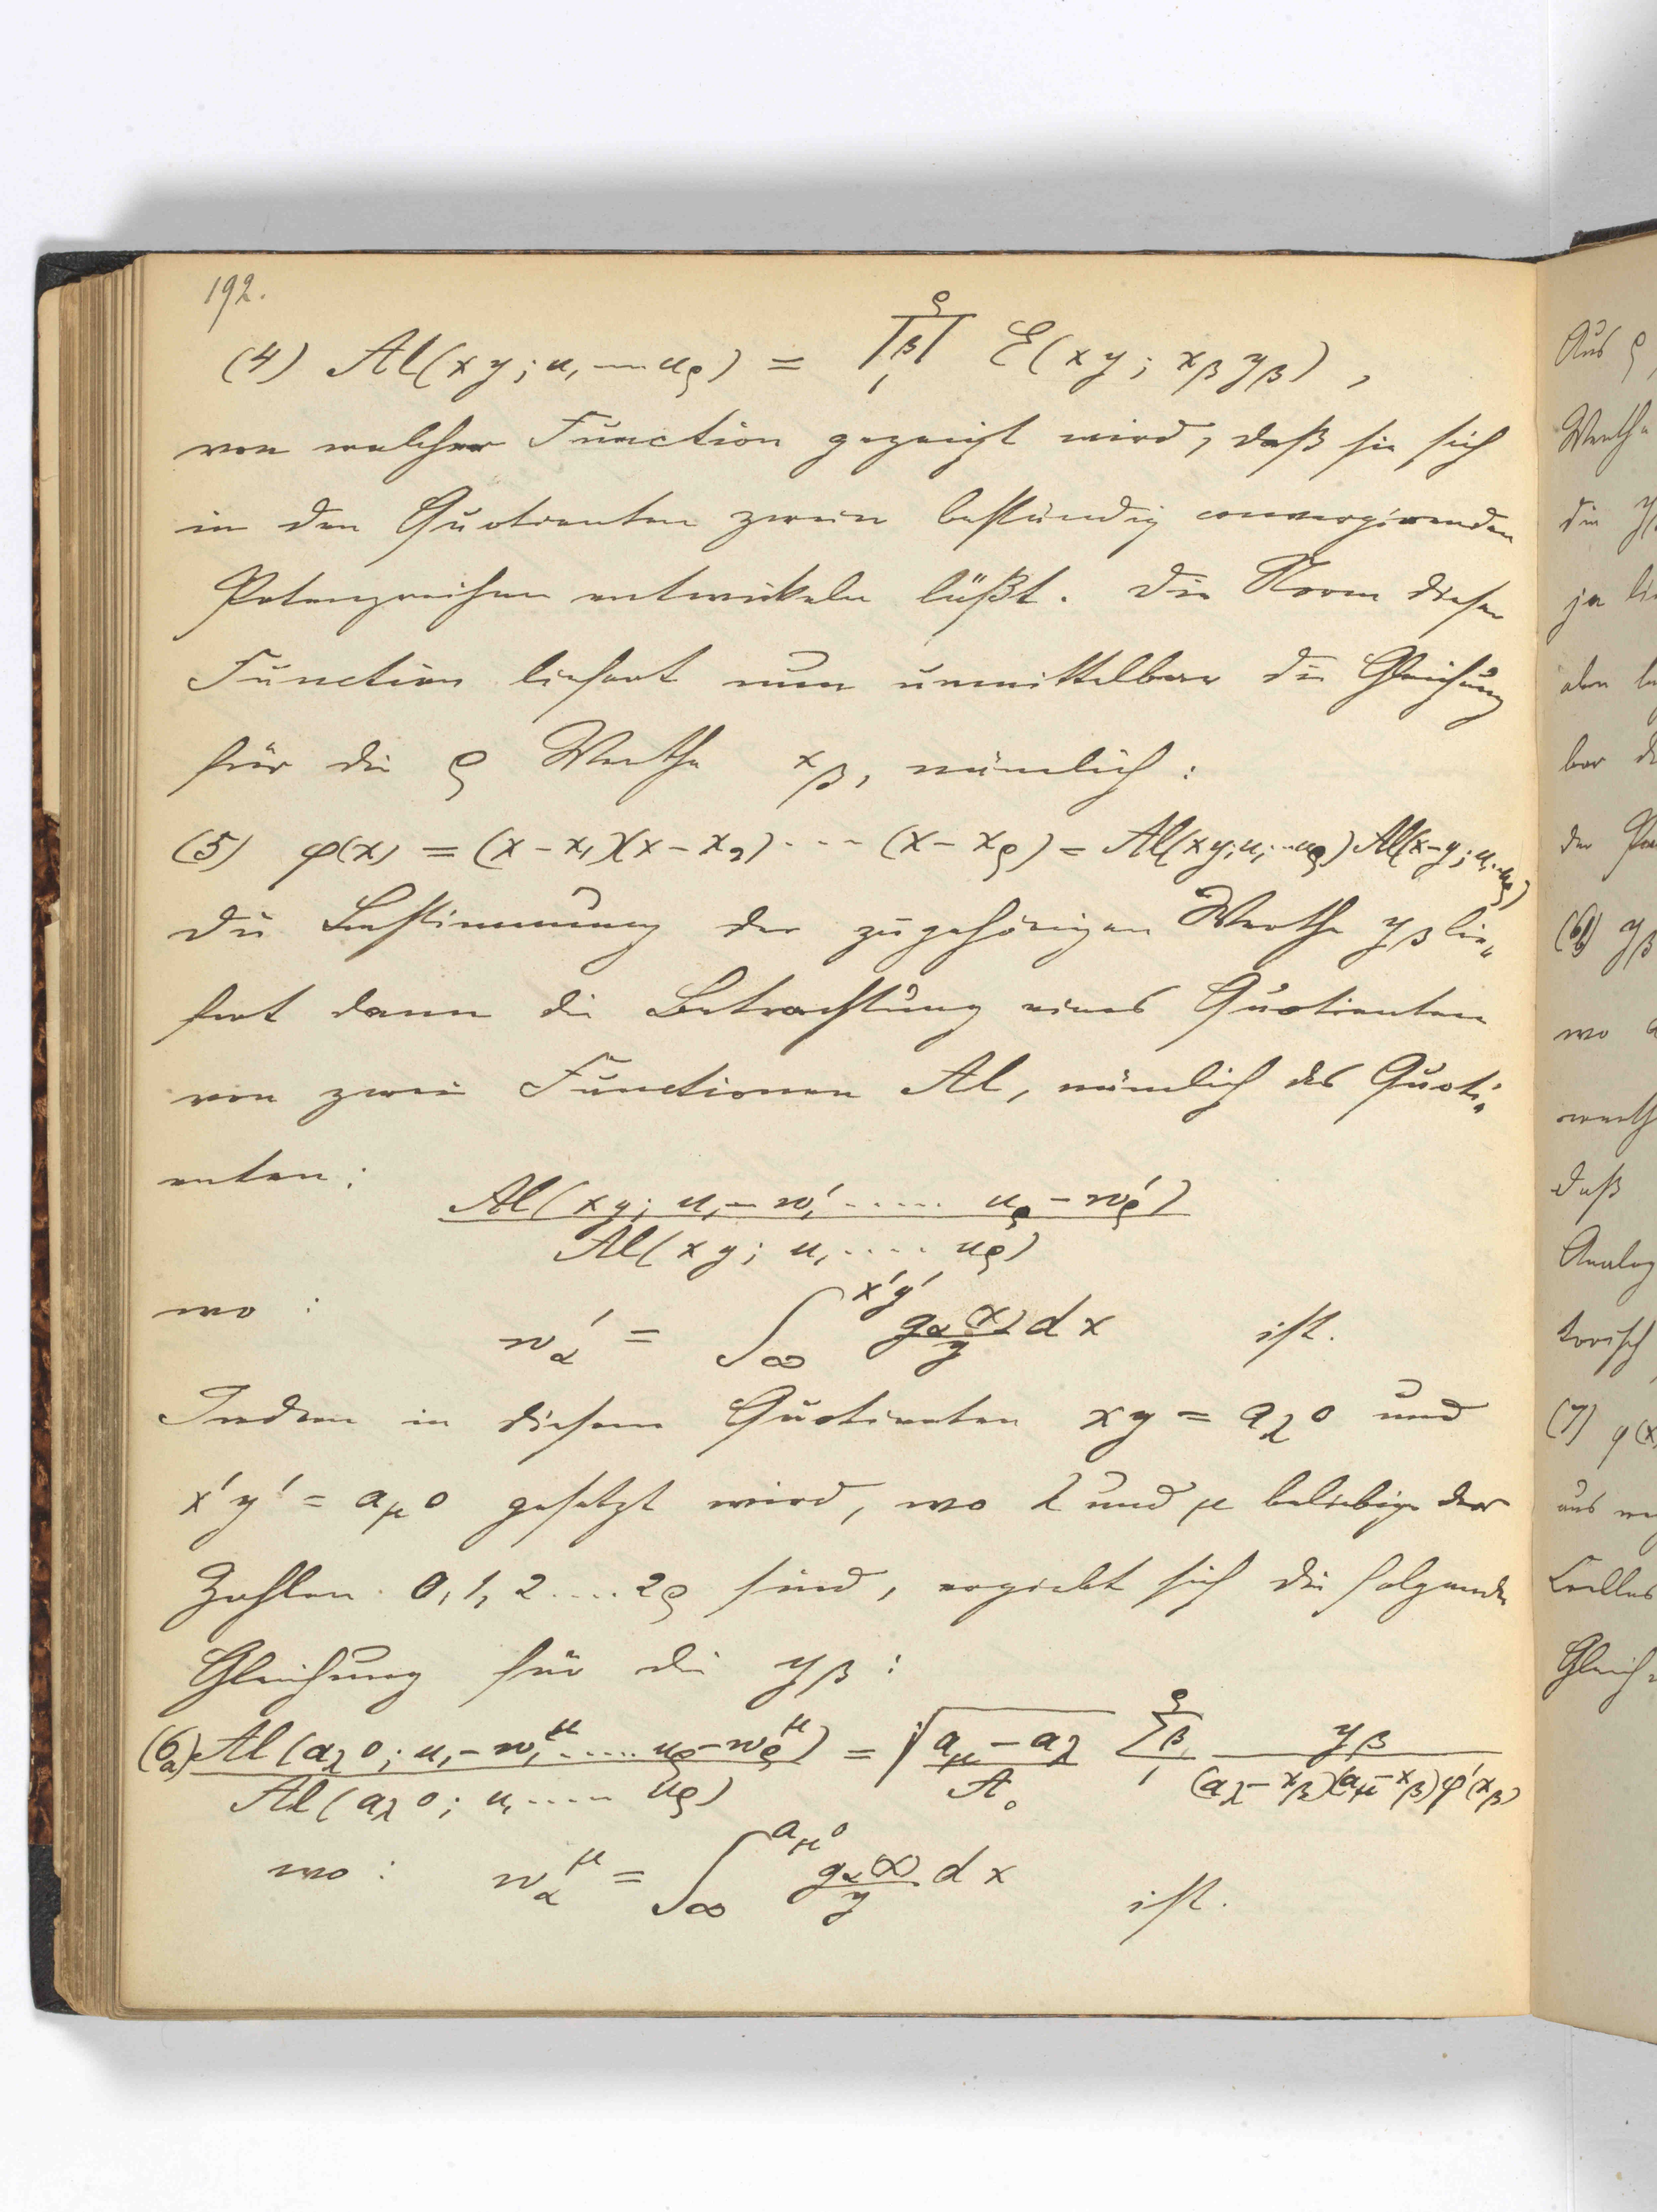 192.
(4) Al(xy; u₁ ---- u_ρ) = ∏_β₁^ρ E(xy; x_β y_β),
von welcher Function gezeigt wird, daß sie sich
in den Quotienten zweier beständig convergirenden
Potenzreihen entwickeln läßt. Die Norm dieser
Function liefert nun unmittelbar die Gleichung
für die ρ Werthe x_β, nämlich:
(5) φ(x) = (x-x₁)(x-x₂)···-(x-x_ρ) = Al(xy; u₁···u_ρ) Al(x-y; u₁···u_ρ)
Die Bestimmung der zugehörigen Werthe y_β lie„
fert dann die Betrachtung eines Quotienten
von zwei Functionen Al, nämlich des Quoti„
enten:
Al(xy; u₁-w₁′ ...... u_ρ-w_ρ′)
Al(xy; u₁ ..... u_ρ)
wo : w_α′ = ∫_∞^{x′y′} g_α(x)/y dx ist.
Indem in diesem Quotienten xy = a_λ 0 und
x′y′ = a_μ 0 gesetzt wird, wo λ und μ beliebige der
Zahlen 0, 1, 2 .... 2ρ sind, ergiebt sich die folgende
Gleichung für die y_β :
(6a) Al(a_λ 0; u₁-w₁^μ ...... u_ρ-w_ρ^μ) / Al(a_λ 0; u₁ ..... u_ρ) = √((a_μ-a_λ)/A₀) ∑_β₁^ρ y_β / ((a_λ-x_β)(a_μ-x_β)φ′(x_β))
wo : w_α^μ = ∫_∞^{a_μ 0} g_α(x)/y dx ist.
Aus ρ,
Werthe
die
ja
aber
bar
der
(6b) y_β
wo
werth
daß
Analog
torisch
(7) φ(x)
aus
Gleich